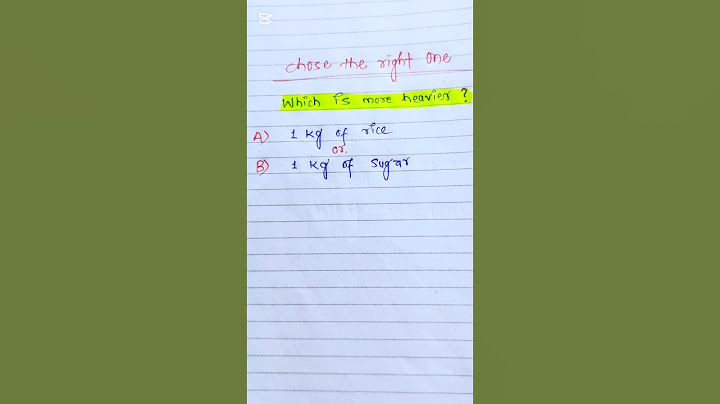 chose the right one
Which is more heavier ?
A) 1 kg of rice
or.
B) 1 kg of sugar